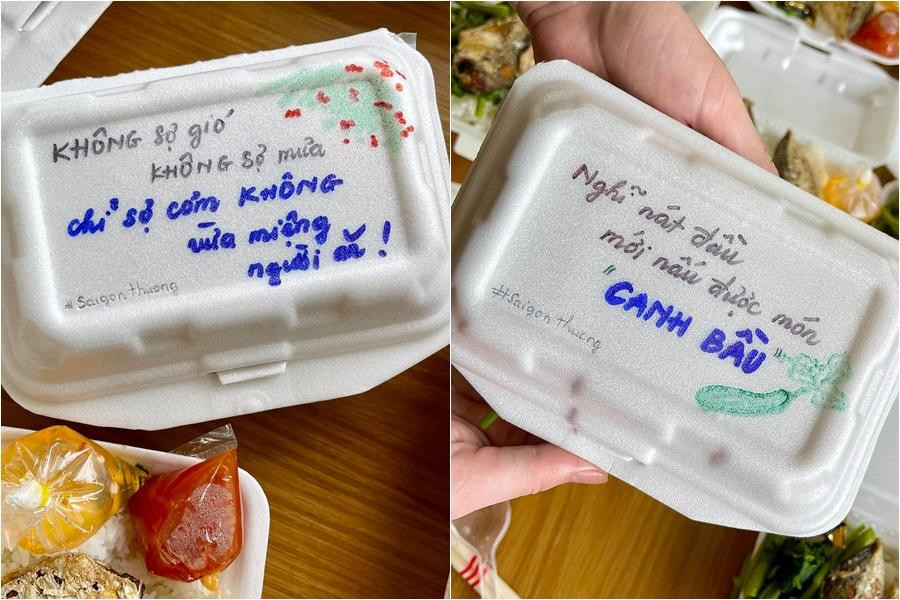 KHÔNG sợ gió
KHÔNG sợ mưa
chỉ sợ cơm KHÔNG
vừa miệng
người ăn!
#Saigon thương
Nghĩ nát đầu
mới nấu được món
"CANH BẦU"
#Saigon thương